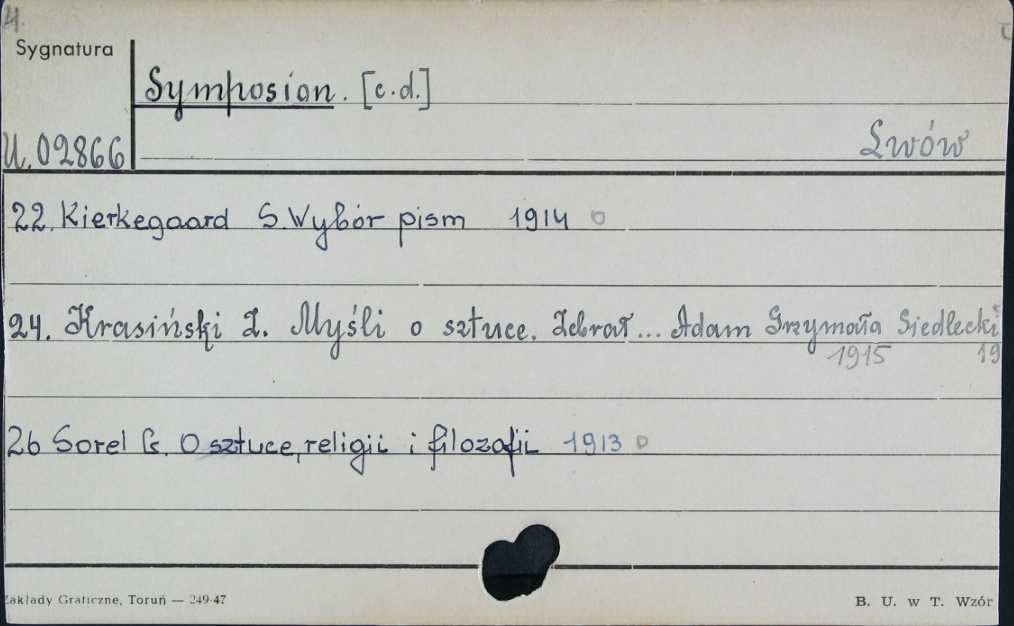 4.
Sygnatura
Symposion. [c.d.]
U. 02866
Lwów
22. Kierkegaard S. Wybór pism 1914
24. Krasiński Z. Myśli o sztuce. Zebrał... Adam Grzymała Siedlecki
1915 19
26 Sorel G. O sztuce, religii i filozofii 1913
Zakłady Graficzne, Toruń — 249-47
B. U. w T. Wzór